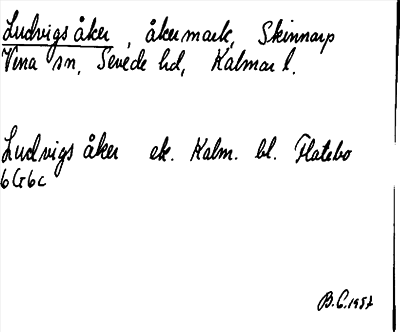 Ludvigsåker, åkermark, Skinnarp
Vena sn, Sevede hd, Kalmar l.
Ludvigs åker ek. Kalm. bl. Flatebo
6G6c
B.C. 1957